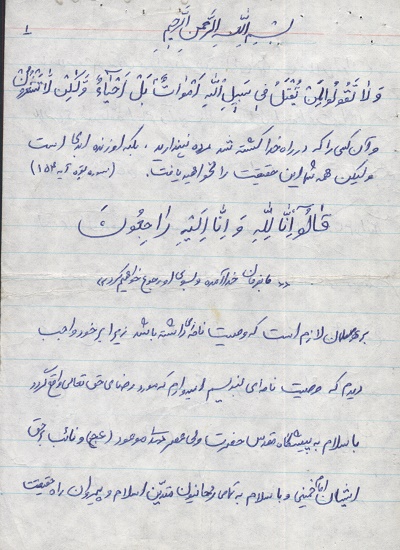 بِسْمِ اللهِ الرَّحْمنِ الرَّحِيمِ
۱
وَلا تَقُولُوا لِمَنْ يُقْتَلُ فِي سَبِيلِ اللهِ اَمْواتٌ بَلْ اَحْياءٌ وَلكِنْ لا تَشْعُرُونَ
و آن کسی را که در راه خدا کشته شد مرده نپندارید، بلکه او زنده ابدی است
ولیکن همه شما این حقیقت را نخواهید یافت. (سوره بقره آیه ۱۵۴)
قالُوا اِنّا لِلّهِ وَ اِنّا اِلَيْهِ راجِعُونَ
«ما بفرمان خدا آمده و بسوی او رجوع خواهیم کرد»
بر هر مسلمان لازم است که وصیت نامه ای داشته باشد زیرا بر خود واجب
دیدم که وصیت نامه ای بنویسم امیدوارم که مورد رضای حق تعالی واقع گردد
با سلام به پیشگاه مقدس حضرت ولی عصر موعود (عج) و نائب بر حق
ایشان امام خمینی و با سلام به تمامی روحانیون متدین اسلام و پیروان راه حقیقت